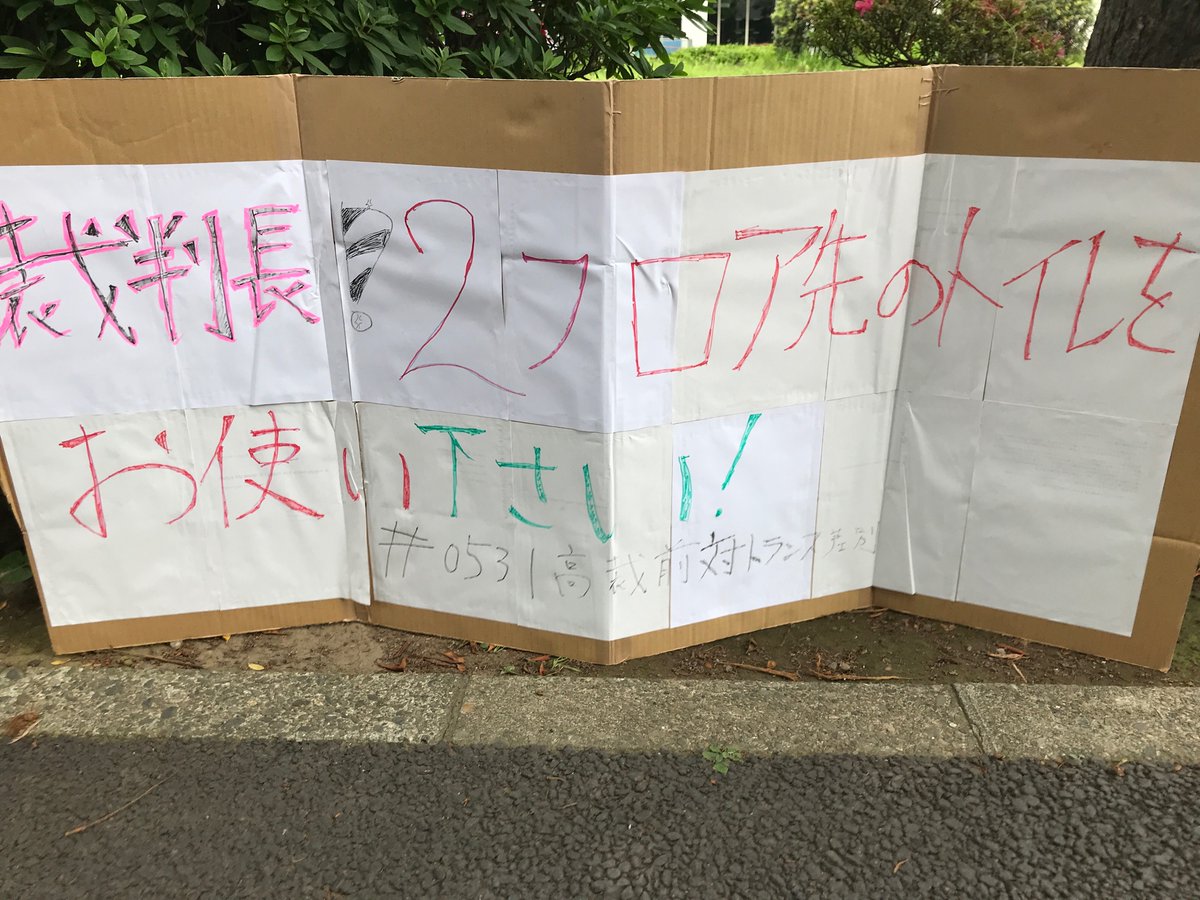 裁判長!2フロア先のトイレを
お使い下さい!
#0531高裁前対トランス差別